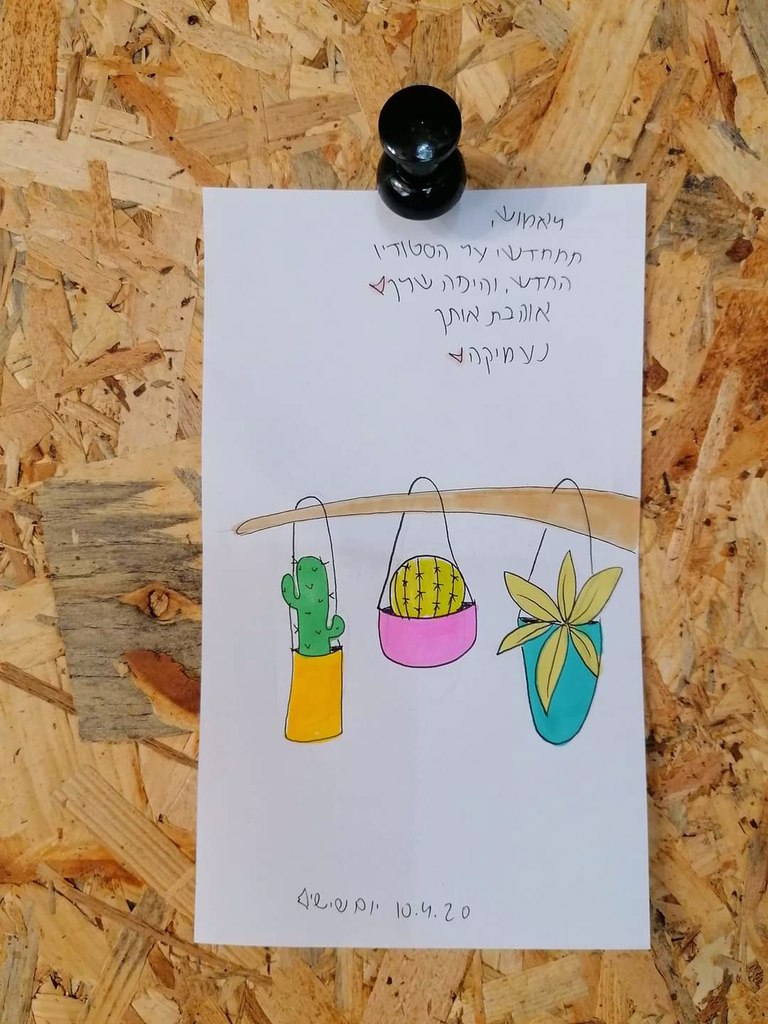 תתחדשי על הסטודיו
החדש, והיפה שלך
אוהבת אותך
נעמיקה
10.4.20 יום שישי